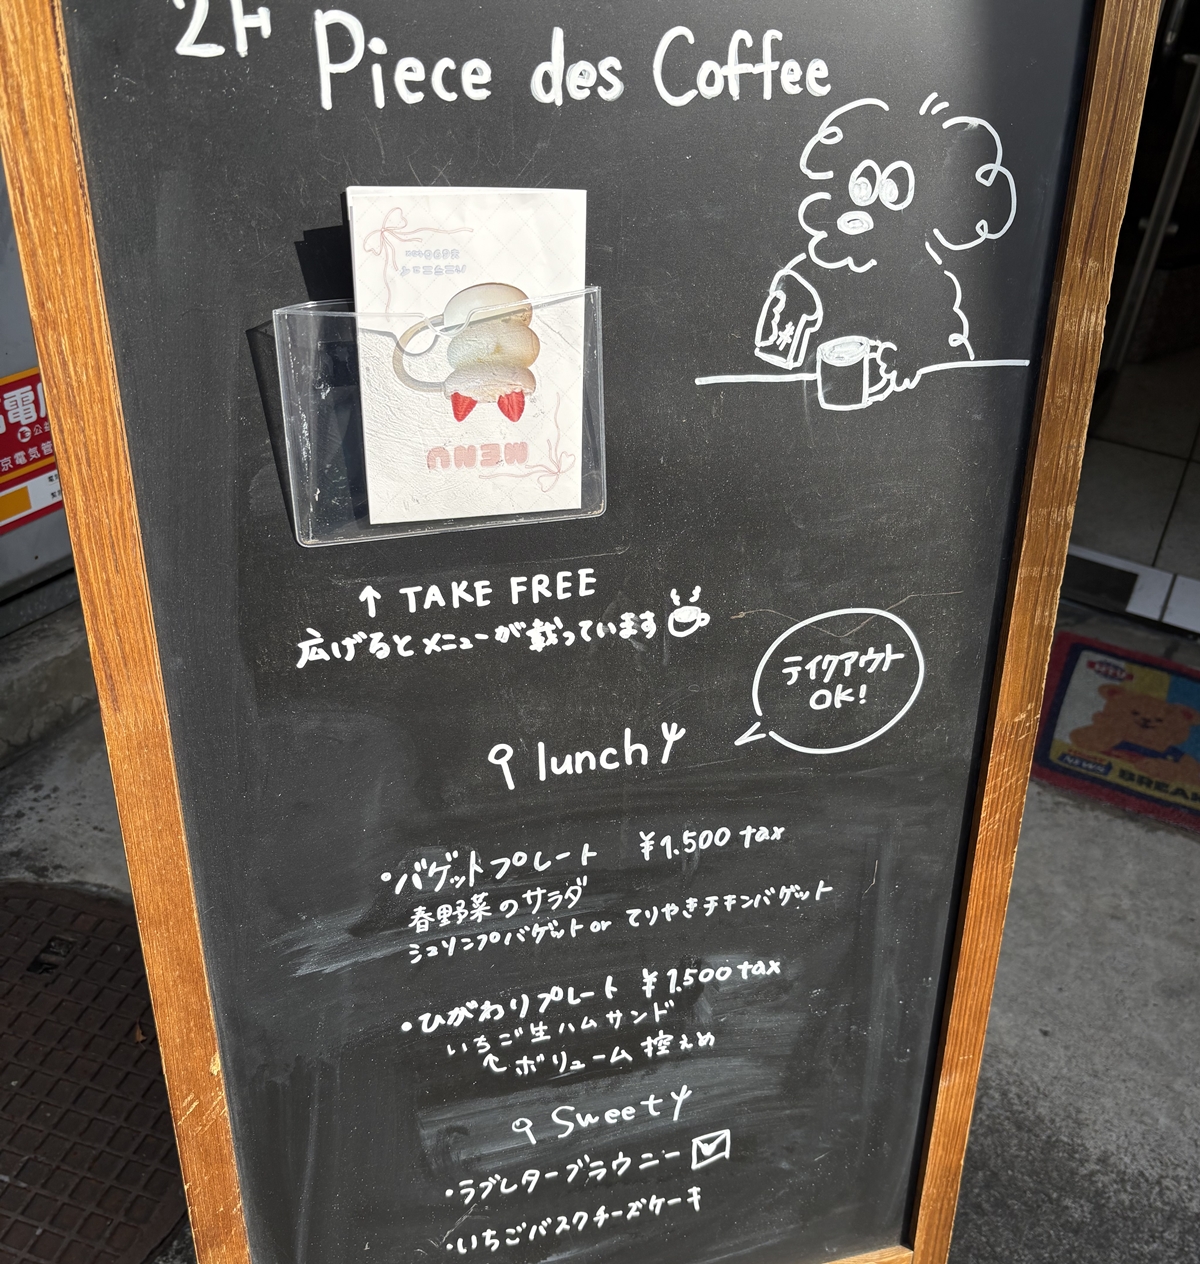 Piece des Coffee
MENU
↑ TAKE FREE
広げるとメニューが載っています
テイクアウト
OK!
lunch
・バゲットプレート ¥1.500 tax
春野菜のサラダ
シュリンプバゲット or てりやきチキンバゲット
・ひがわりプレート ¥1.500 tax
いちご生ハムサンド
↑ボリューム控えめ
Sweet
・ラブレターブラウニー
・いちごバスクチーズケーキ